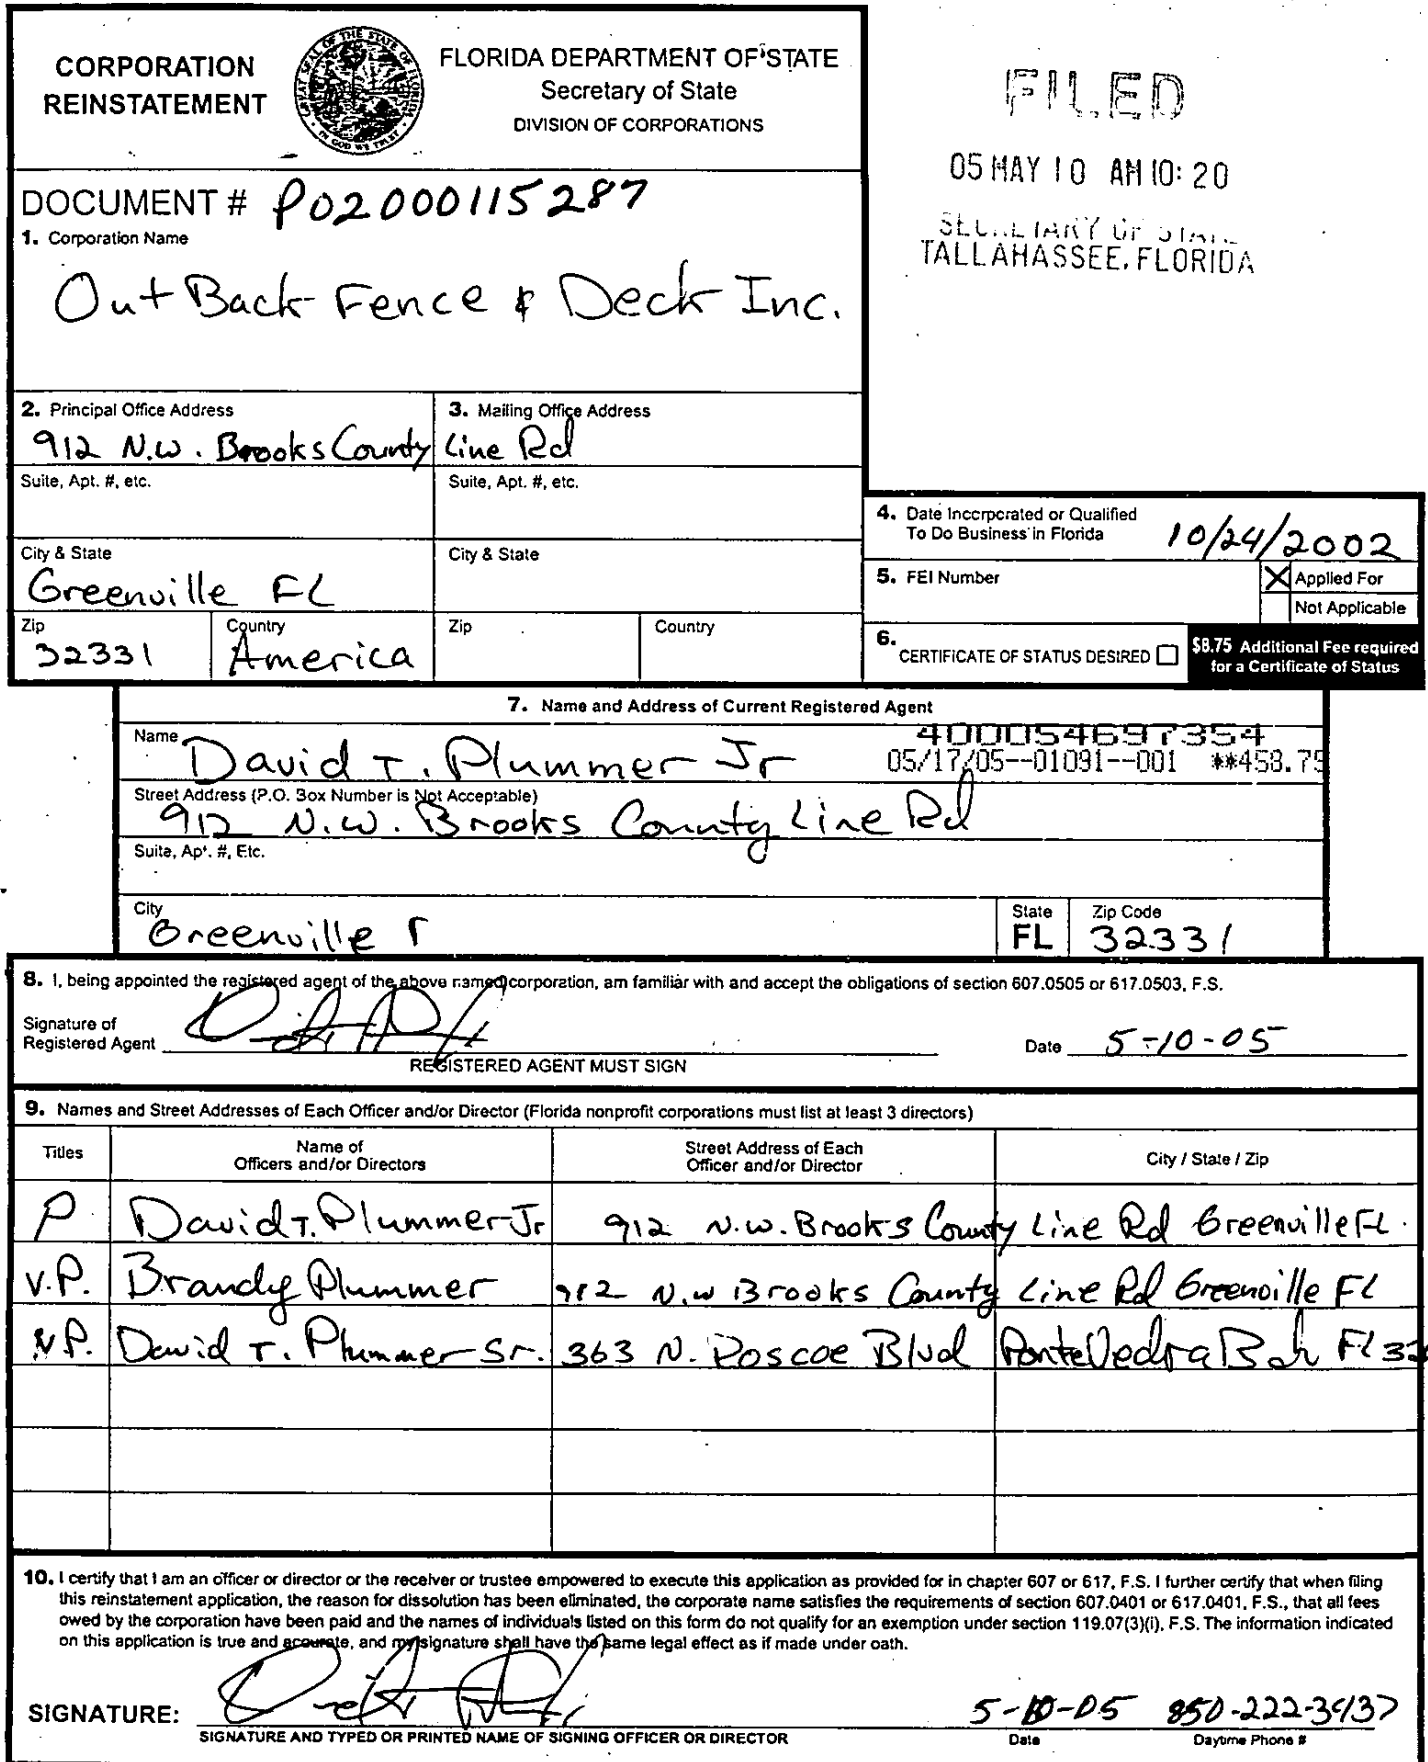 CORPORATION REINSTATEMENT
FLORIDA DEPARTMENT OF STATE
Secretary of State
DIVISION OF CORPORATIONS
FILED
05 MAY 10 AM 10: 20
SECRETARY OF STATE
TALLAHASSEE, FLORIDA
DOCUMENT # P02000115287
1. Corporation Name
Out Back Fence & Deck Inc.
2. Principal Office Address
3. Mailing Office Address
912 N.W. Brooks County Line Rd
Suite, Apt. #, etc.
Suite, Apt. #, etc.
City & State
Greenville FL
City & State
Zip
32331
Country
America
Zip
Country
4. Date Incorporated or Qualified
To Do Business in Florida
10/24/2002
5. FEI Number
X Applied For
Not Applicable
6. CERTIFICATE OF STATUS DESIRED
$8.75 Additional Fee required
for a Certificate of Status
7. Name and Address of Current Registered Agent
400054697354
05/17/05--01091--001 **458.75
Name
David T. Plummer Jr
Street Address (P.O. Box Number is Not Acceptable)
912 N.W. Brooks County Line Rd
Suite, Apt. #, Etc.
City
Greenville
State
FL
Zip Code
32331
8. I, being appointed the registered agent of the above named corporation, am familiar with and accept the obligations of section 607.0505 or 617.0503, F.S.
Signature of
Registered Agent
Date 5-10-05
REGISTERED AGENT MUST SIGN
9. Names and Street Addresses of Each Officer and/or Director (Florida nonprofit corporations must list at least 3 directors)
Titles
Name of
Officers and/or Directors
Street Address of Each
Officer and/or Director
City / State / Zip
P David T. Plummer Jr 912 N.W. Brooks County Line Rd Greenville FL.
V.P. Brandy Plummer 912 N.W Brooks County Line Rd Greenville FL
V.P. David T. Plummer Sr. 363 N. Roscoe Blvd Ponte Vedra Bch Fl
10. I certify that I am an officer or director or the receiver or trustee empowered to execute this application as provided for in chapter 607 or 617, F.S. I further certify that when filing
this reinstatement application, the reason for dissolution has been eliminated, the corporate name satisfies the requirements of section 607.0401 or 617.0401, F.S., that all fees
owed by the corporation have been paid and the names of individuals listed on this form do not qualify for an exemption under section 119.07(3)(i), F.S. The information indicated
on this application is true and accurate, and my signature shall have the same legal effect as if made under oath.
SIGNATURE:
5-10-05 850-222-3437
SIGNATURE AND TYPED OR PRINTED NAME OF SIGNING OFFICER OR DIRECTOR
Date
Daytime Phone #